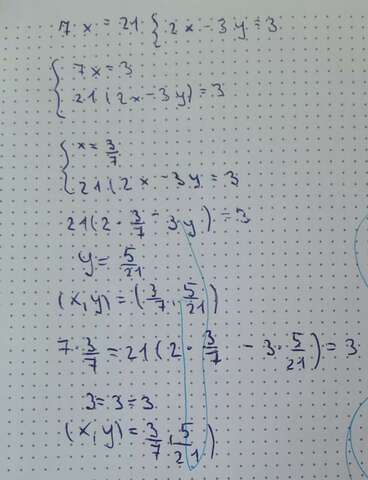 7 · x = 21 { 2x - 3y = 3
{ 7x = 3
21(2x - 3y) = 3
{ x = 3/7
21(2x - 3y = 3
21(2 · 3/7 - 3y) = 3
y = 5/21
(x,y) = (3/7, 5/21)
7 · 3/7 = 21(2 · 3/7 - 3 · 5/21) = 3
3 = 3 = 3
(x,y) = 3/7, 5/21)